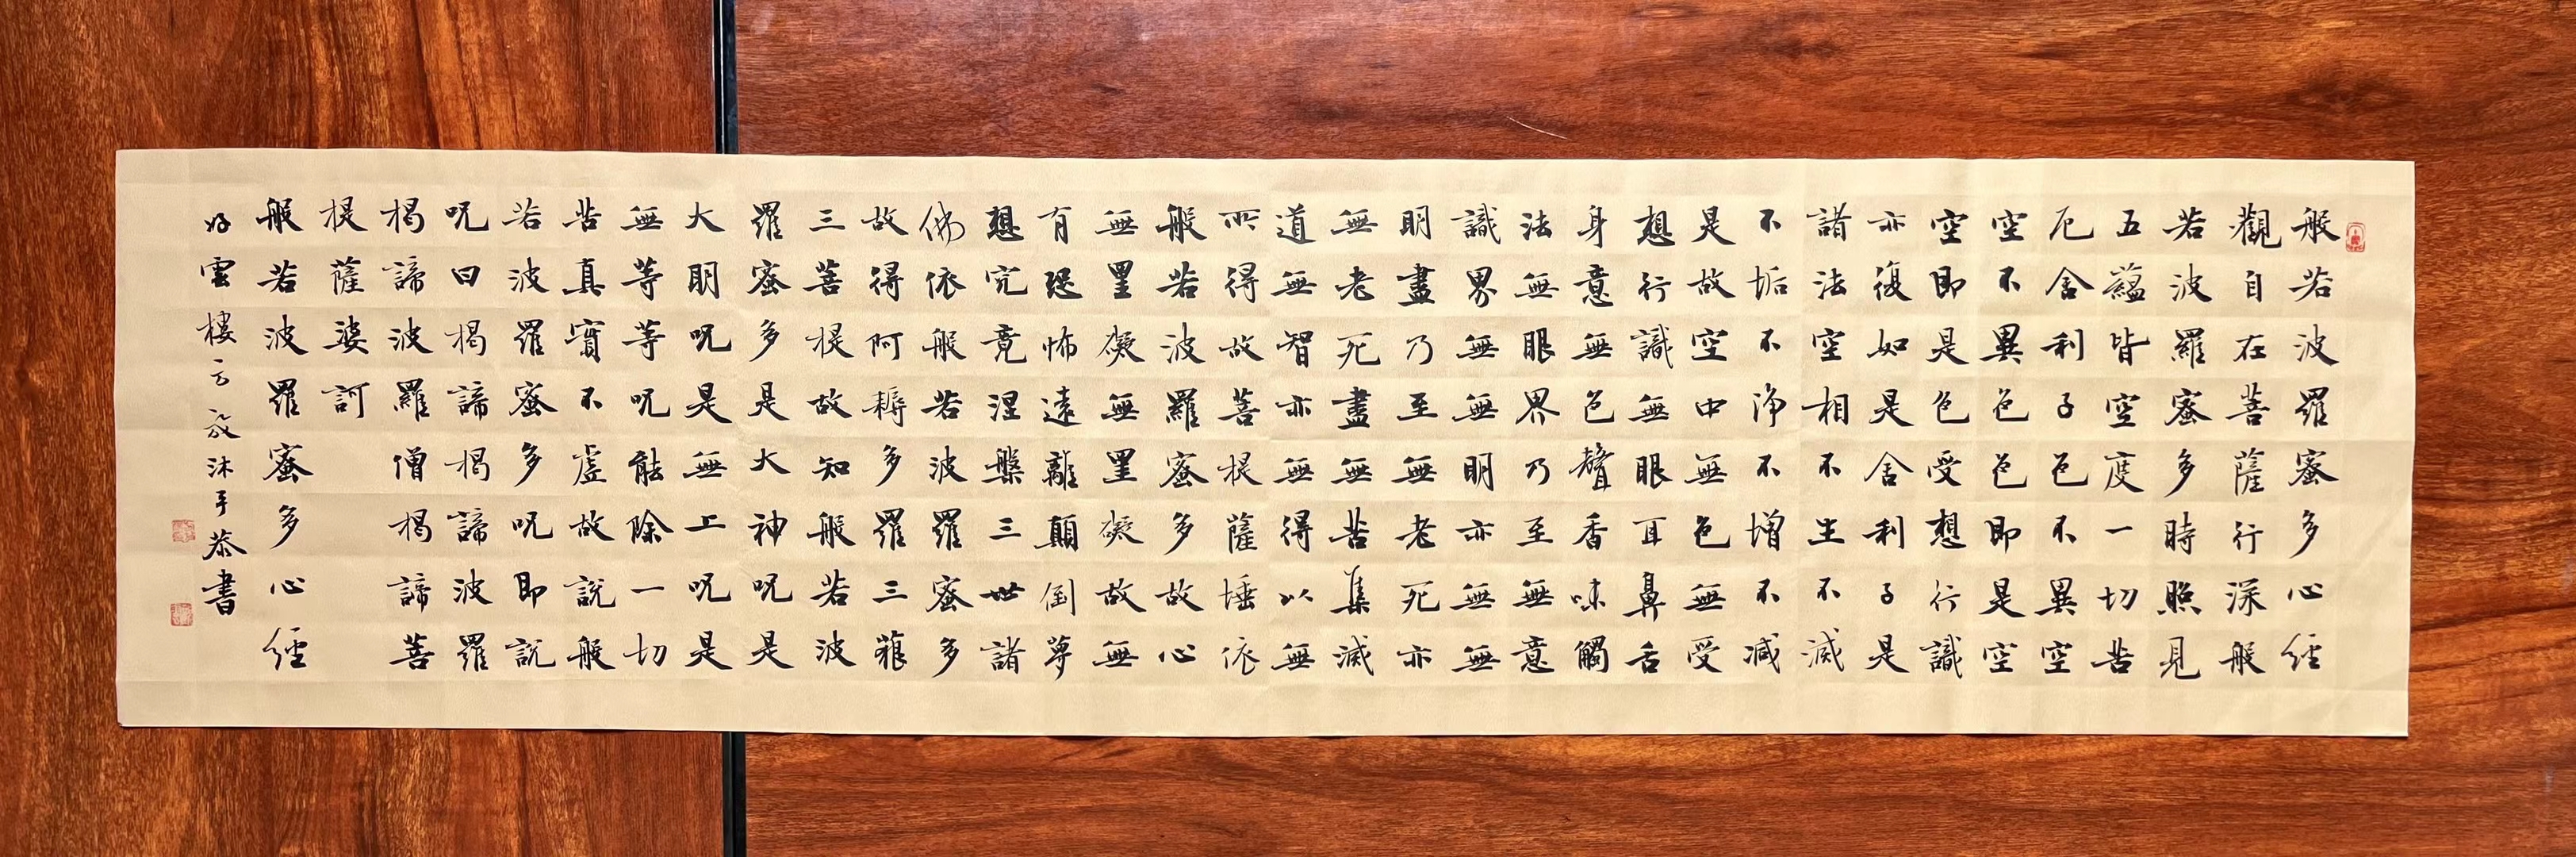 般若波羅蜜多心經
觀自在菩薩行深般
若波羅蜜多時照見
五蘊皆空度一切苦
厄舍利子色不異空
空不異色色即是空
空即是色受想行識
亦復如是舍利子是
諸法空相不生不滅
不垢不淨不增不減
是故空中無色無受
想行識無眼耳鼻舌
身意無色聲香味觸
法無眼界乃至無意
識界無無明亦無無
明盡乃至無老死亦
無老死盡無苦集滅
道無智亦無得以無
所得故菩提薩埵依
般若波羅蜜多故心
無罣礙無罣礙故無
有恐怖遠離顛倒夢
想究竟涅槃三世諸
佛依般若波羅蜜多
故得阿耨多羅三藐
三菩提故知般若波
羅蜜多是大神呪是
大明呪是無上呪是
無等等呪能除一切
苦真實不虛故說般
若波羅蜜多呪即說
呪曰揭諦揭諦波羅
揭諦波羅僧揭諦菩
提薩婆訶
般若波羅蜜多心經
好雲樓沐手恭書